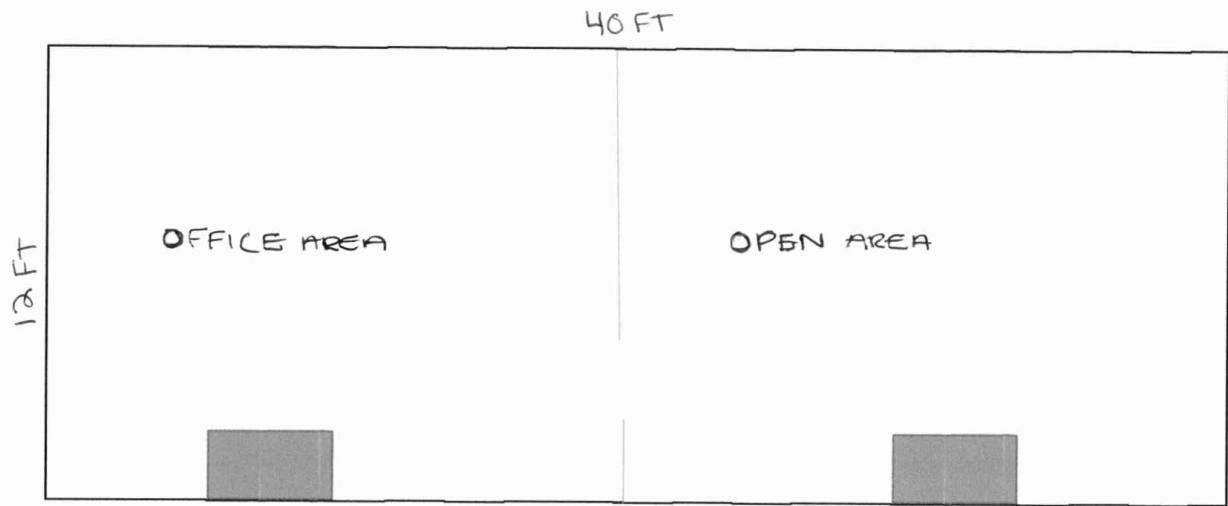 40 FT
12 FT
OFFICE AREA
OPEN AREA